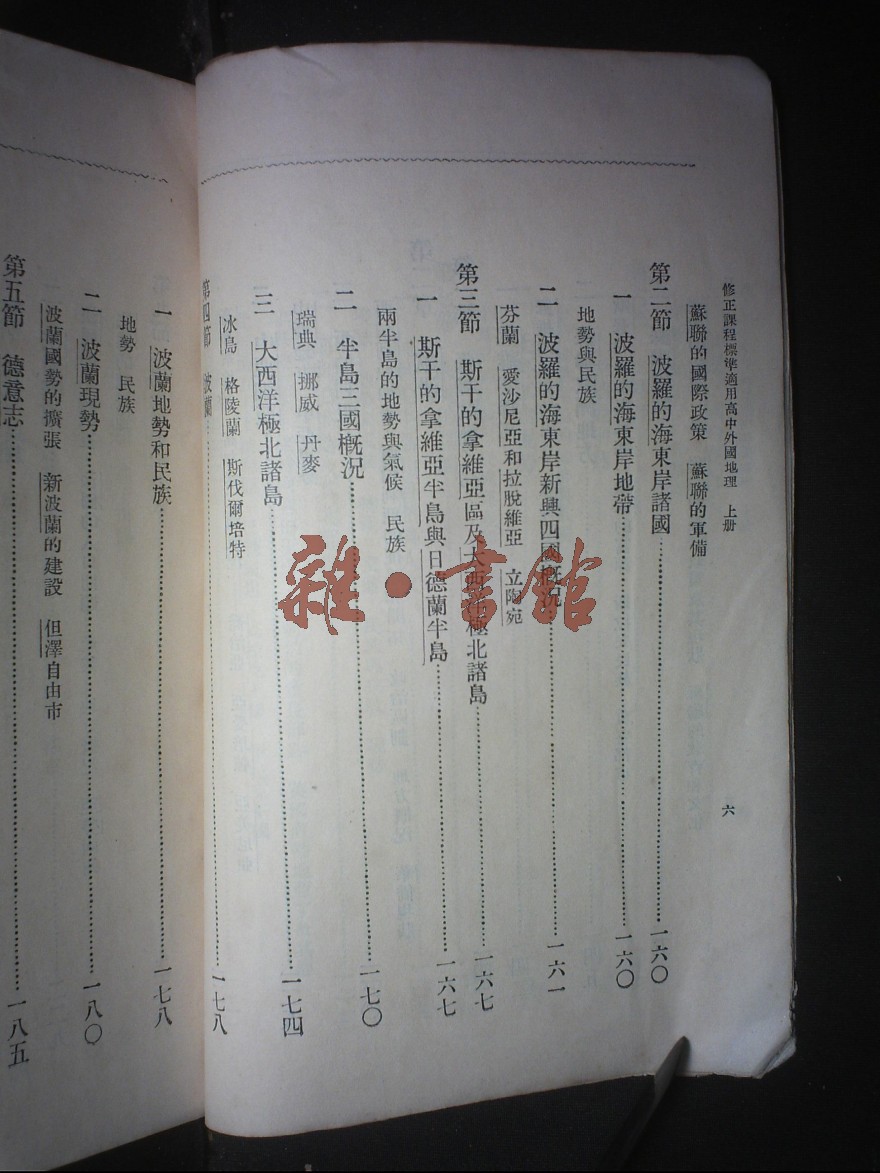 修正課程標準適用高中外國地理 上册
六
蘇聯的國際政策 蘇聯的軍備
第二節 波羅的海東岸諸國……一六〇
一 波羅的海東岸地帶……一六〇
地勢與民族
二 波羅的海東岸新興四國概況……一六一
芬蘭 愛沙尼亞和拉脫維亞 立陶宛
第三節 斯干的拿維亞區及大西洋極北諸島……一六七
一 斯干的拿維亞半島與日德蘭半島……一六七
兩半島的地勢與氣候 民族
二 半島三國概況……一七〇
瑞典 挪威 丹麥
三 大西洋極北諸島……一七四
冰島 格陵蘭 斯伐爾培特
第四節 波蘭……一七八
一 波蘭地勢和民族……一七八
地勢 民族
二 波蘭現勢……一八〇
波蘭國勢的擴張 新波蘭的建設 但澤自由市
第五節 德意志……一八五
雜·書館